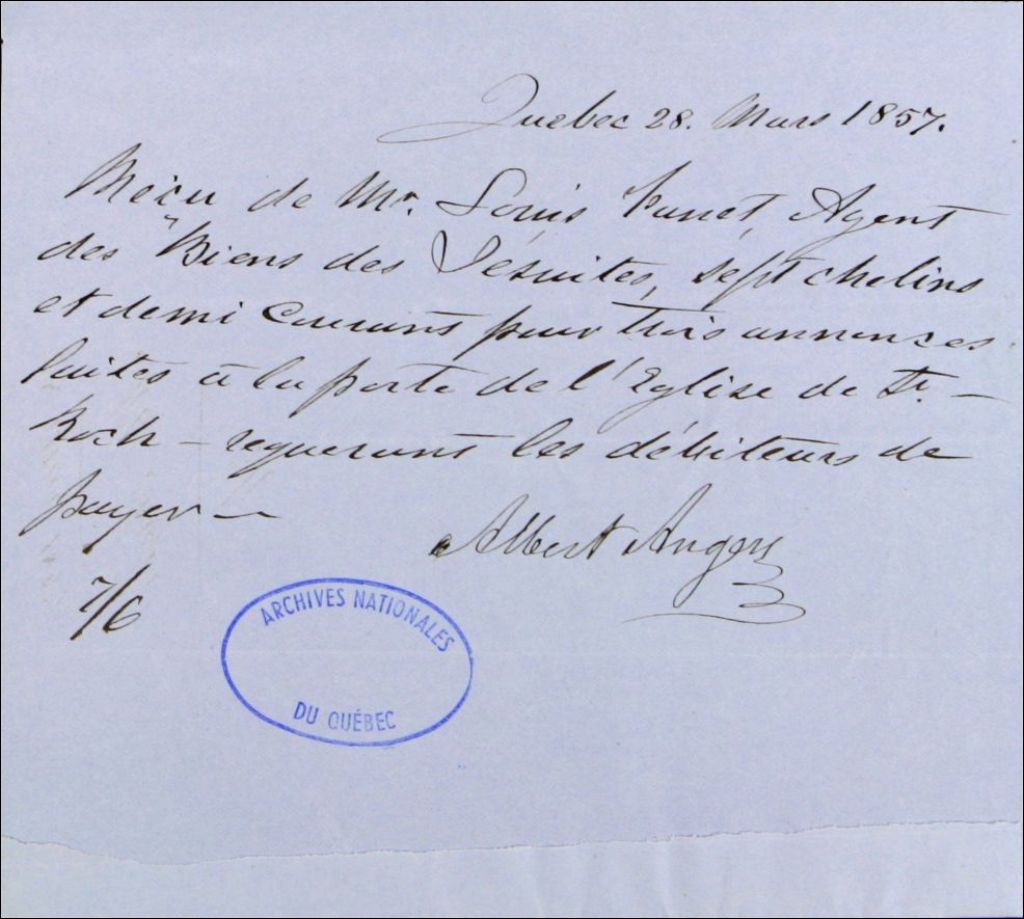 Quebec 28. Mars 1857.
Réçu de Mr. Louis Panet, Agent
des Biens des Jésuites, sept chelins
et demi courants pour trois annonces
faites à la porte de l'Eglise de St. –
Roch – requerant les débiteurs de
payer –
Albert Angers
7/6
ARCHIVES NATIONALES
DU QUÉBEC